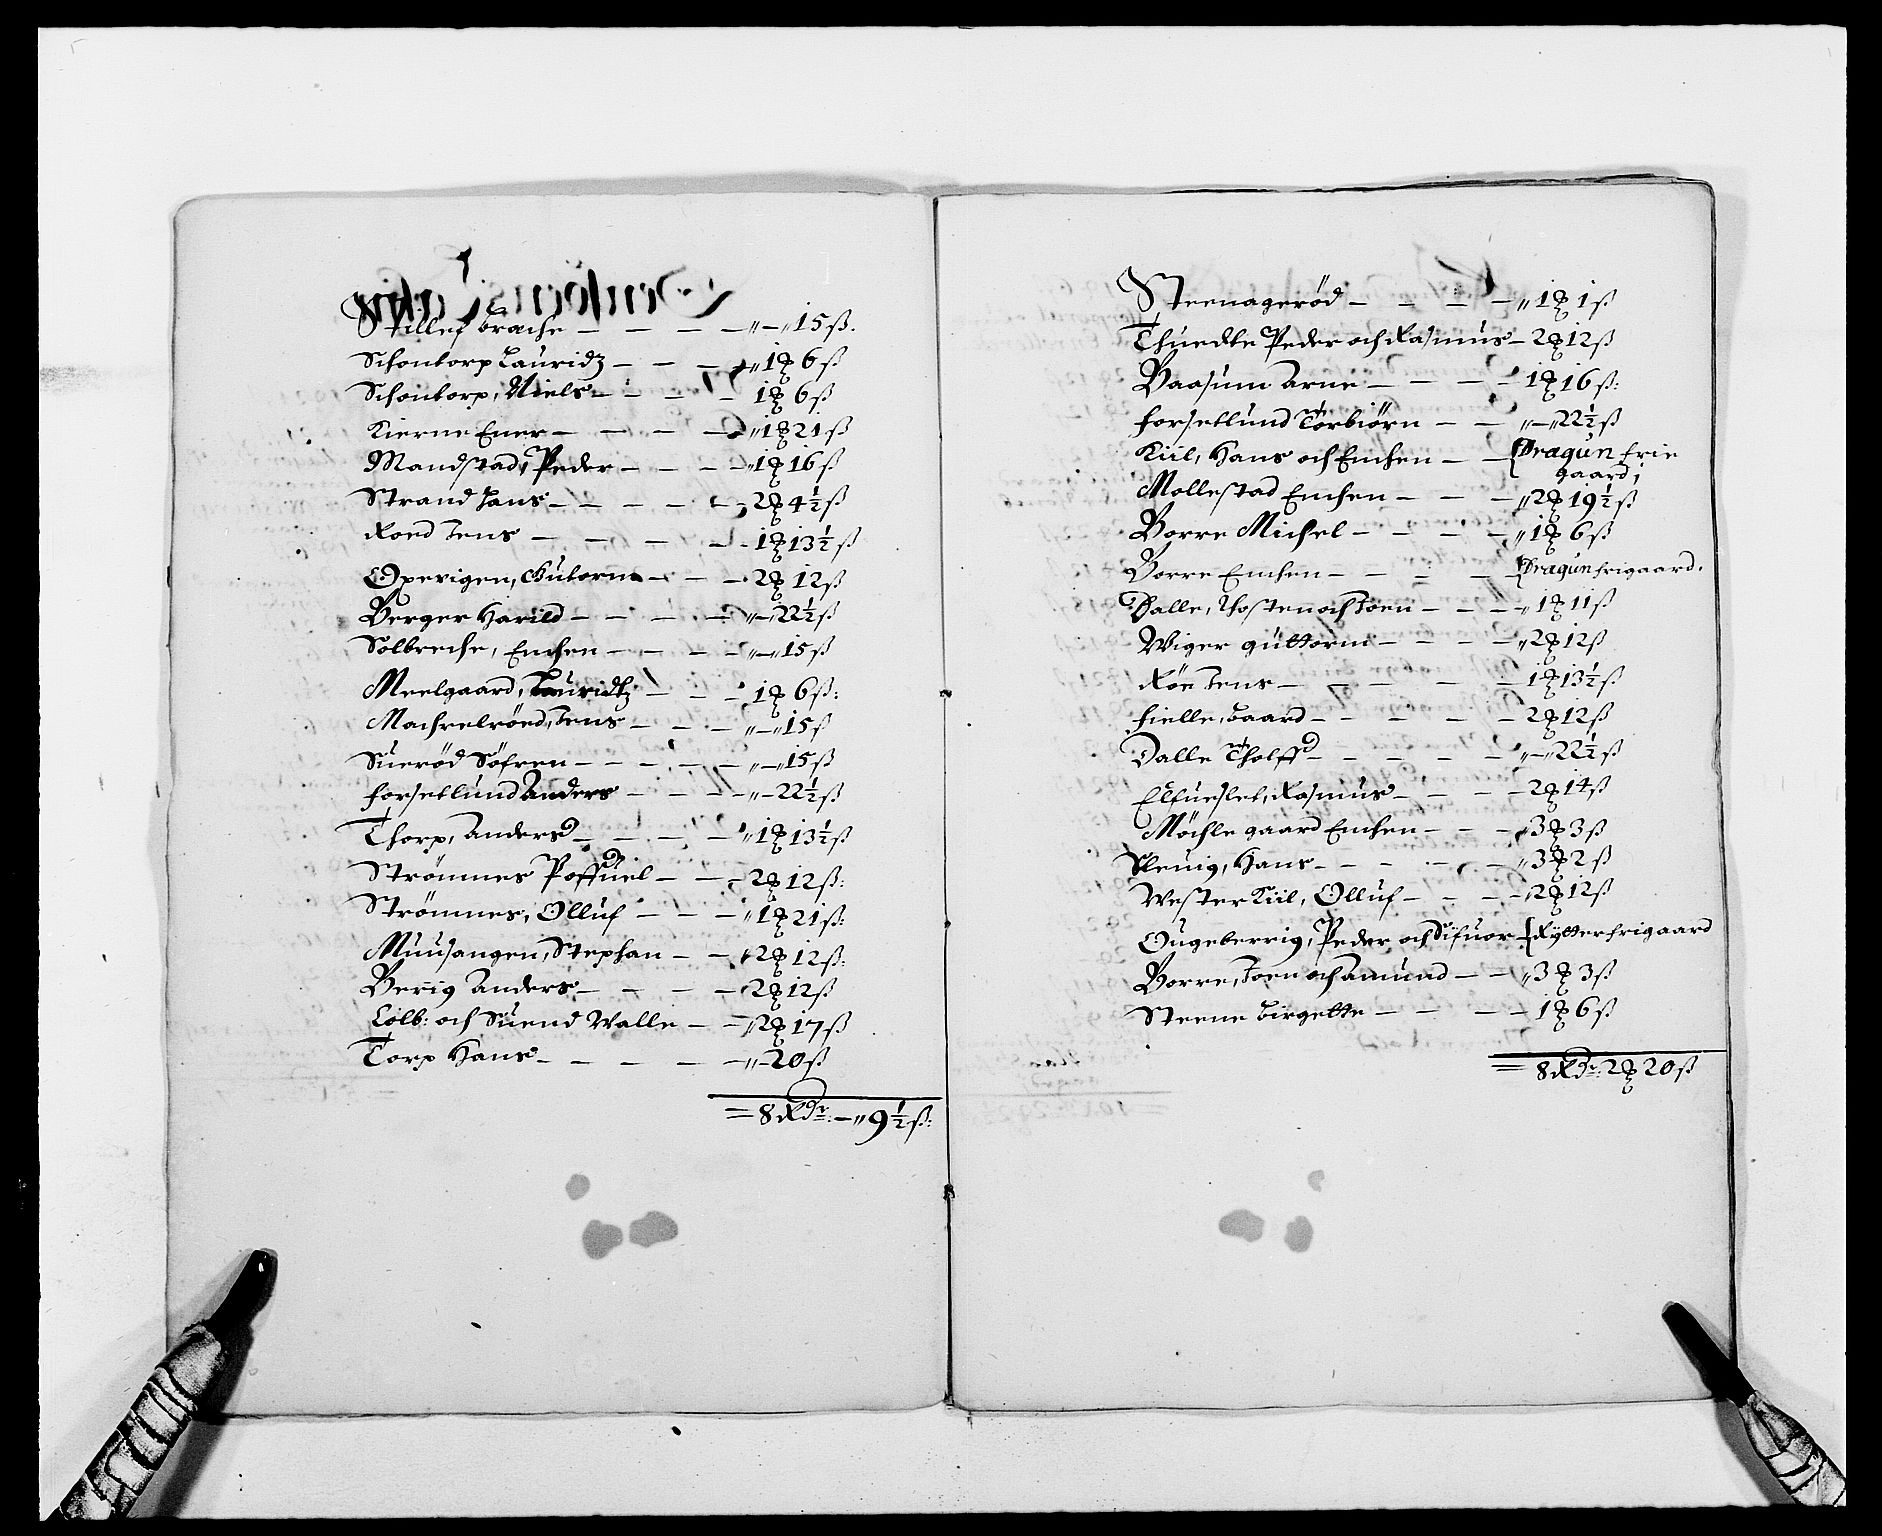 Stillef brache — — — — „—„ 15 ß.
Schontorp Lauridz — — — „ 1 ꝝ 6 ß
Schontorp, Niels — — — — 1 ꝝ 6 ß
Kierne Ener — — — — „ 1 ꝝ 21 ß
Mandstad, Peder — — — — „ 1 ꝝ 16 ß
Strand Hans — — — — 2 ꝝ 4½ ß
Roed Jens — — — — 1 ꝝ 13½ ß
Opevigen, Gutorm — — — 2 ꝝ 12 ß
Berger Harild — — — — „—„ 22½ ß
Solbreche, Emchen — — — — „—„ 15 ß
Meelgaard, Lauridtz — — — 1 ꝝ 6 ß:
Machrelröed, Jens — — — „—„ 15 ß
Suerød Söfren — — — — — „—„ 15 ß
forsetlund Anders — — — „— 22½ ß
Thorp, Anders — — — — „ 1 ꝝ 13½ ß
Strömnes Poffuel — — 2 ꝝ 12 ß:
Strömnes, Olluf — — — „ 1 ꝝ 21 ß:
Muusangen, Stephan — — 2 ꝝ 12 ß:
Berrig Anders — — — — 2 ꝝ 12 ß
Colb: och Suend Walle — — 2 ꝝ 17 ß
Torp Hans — — — — „— 20 ß
= 8 Rdr: — „ 9½ ß:
Steenagerød — — — — „ 1 ꝝ 1 ß
Thuedte Peder och Rasmus — 2 ꝝ 12 ß
Baasum Arne — — — — 1 ꝝ 16 ß:
forsetlund Torbiörn — — „—„ 22½ ß
Kiil, Hans och Emchen — — { Dragun frie
gaard;
Mollestad Emchen — — — „ 2 ꝝ 19½ ß
Borre Michel — — — — „ 1 ꝝ 6 ß
Borre Emchen — — — — { Dragun frigaard.
Dalle, Thosten och Joen — — — „ 1 ꝝ 11 ß
Wiger guttorm — — — — „ 2 ꝝ 12 ß
Röe Jens — — — — — 1 ꝝ 13½ ß
fielle, baard — — — — — 2 ꝝ 12 ß
Dalle Tholff — — — — „—„ 22½ ß
Elfueslet, Rasmus — — — 2 ꝝ 14 ß
Möchle gaard Emchen — — — „ 3 ꝝ 3 ß
Sleuig, Hans — — — — — „ 3 ꝝ 2 ß
Wester Kiil, Olluf — — — — 2 ꝝ 12 ß
Ougeberrig, Peder och Sifuor — { Rytterfrigaard
Borre, Joen och Amund — — „ 3 ꝝ 3 ß
Steene birgette — — — — 1 ꝝ 6 ß
= 8 Rdr: 2 ꝝ 20 ß